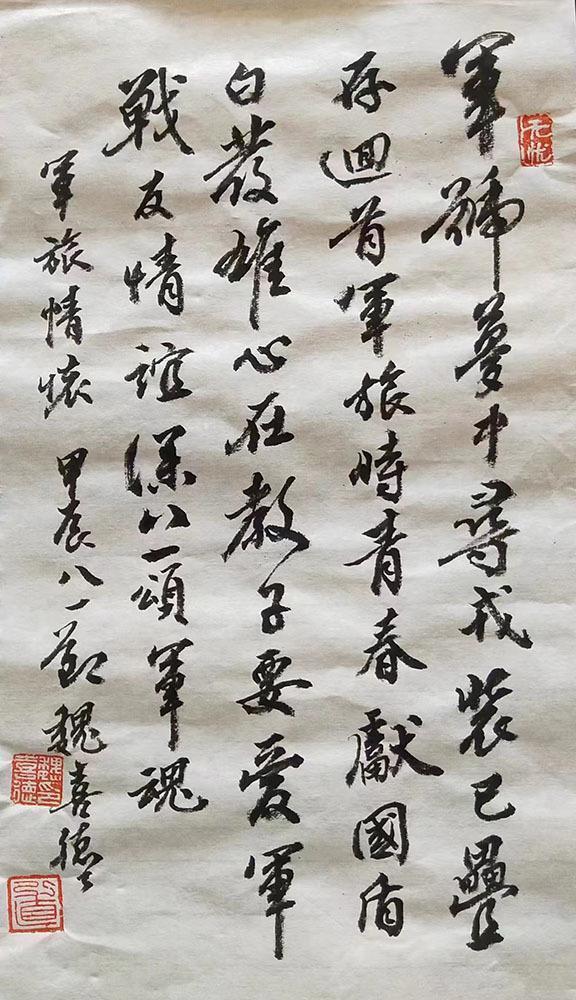 軍號夢中尋戎裝已疊
存迴首軍旅時青春獻國盾
白发雄心在教子要愛軍
戰友情誼深八一頌軍魂
軍旅情懷 甲辰八一節 魏喜德